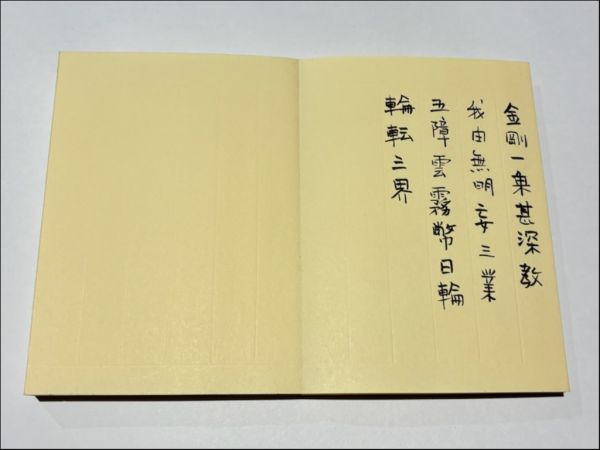 金剛一乗甚深教
我由無明妄三業
五障雲霧幣日輪
輪転三界